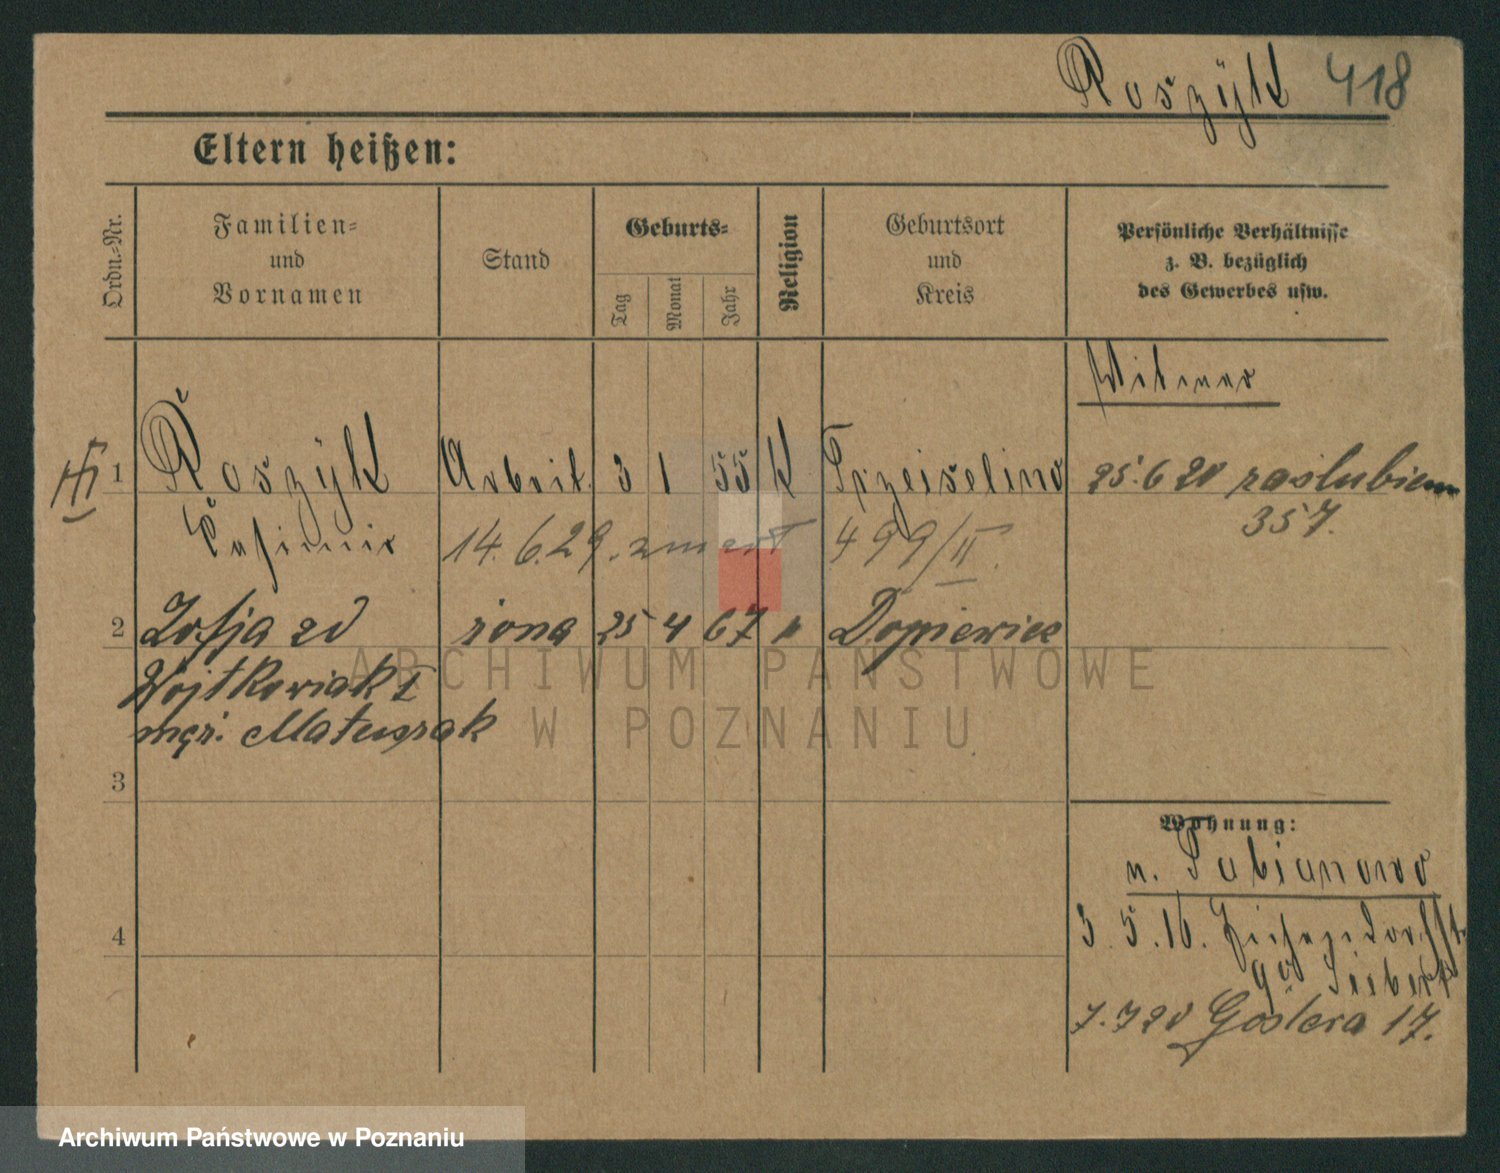 Roszÿk 418
Eltern heißen:
Ordn.-Nr.
Familien-
und
Vornamen
Stand
Geburts-
Tag
Monat
Jahr
Religion
Geburtsort
und
Kreis
Persönliche Verhältnisse
z. B. bezüglich
des Gewerbes usw.
Witwer
1 Roszÿk Arbeit. 3 1 55 K
25.6 20 zaślubiony
357.
Casimir 14.6.29. zmarł 499/II.
2 Zofja zd żona 25 4 67 " Dopiewiec
Wojtkowiak I
męż. Matuszak
ARCHIWUM PAŃSTWOWE
W POZNANIU
3
Wohnung:
n. Fabianowo
4
3.5.16.
7.7 20 Gostera 17.
Archiwum Państwowe w Poznaniu